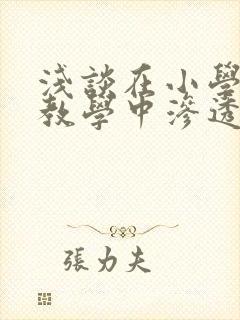 淺談在小學
教學中滲透
張力夫